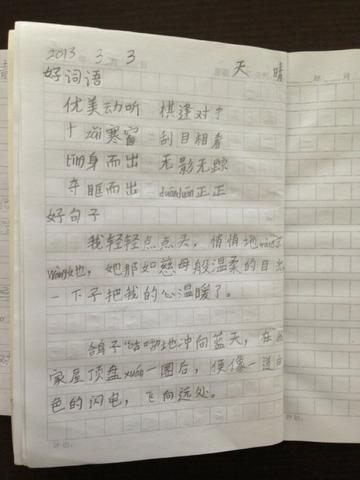 2013 年 3 月 3 日 星期 天 天气 晴
好词语
优美动听 棋逢对手
十zǎi寒窗 刮目相看
tǐng身而出 无影无踪
夺眶而出 duānduān正正
好句子
我轻轻点点头，悄悄地
她，她那如慈母般温柔的目光
一下子把我的心温暖了。
鸽子"咕"地冲向蓝天，在
家屋顶盘xuán一圈后，便像一道白
色的闪电，飞向远处。
评语：